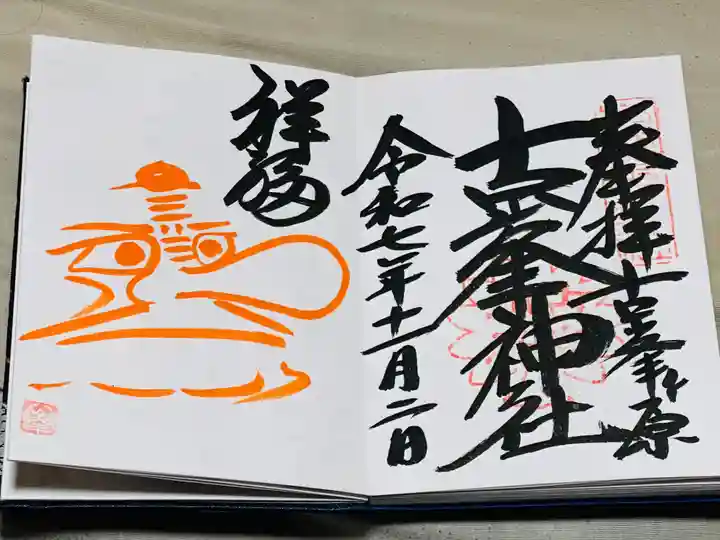 奉拝 古峯ヶ原
古峯神社
令和七年十一月二日
祥福